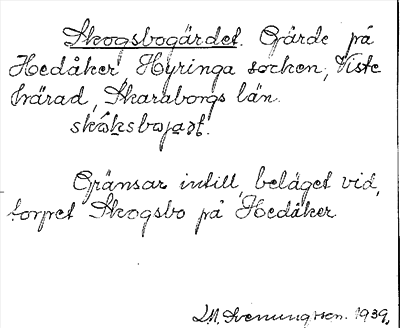 Skogsbogärdet. Gärde på
Hedåker, Hyringa socken, Viste
härad, Skaraborgs län.
Gränsar intill, beläget vid,
torpet Skogsbo på Hedåker
1939.